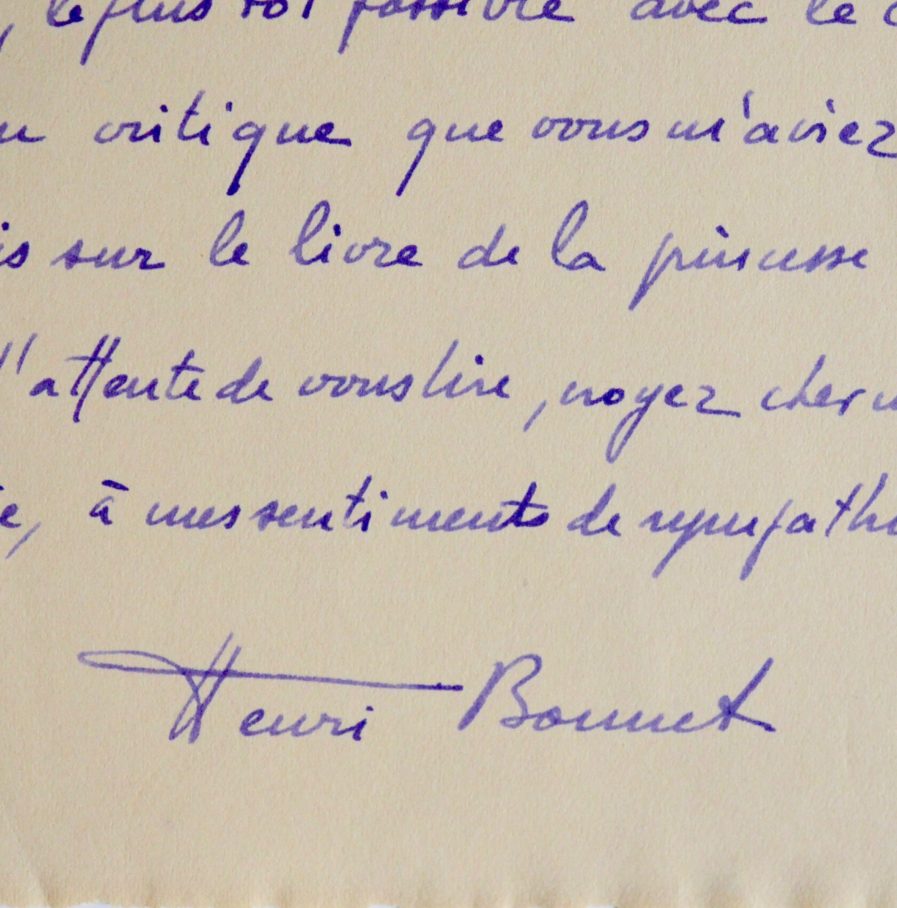 , le plus tôt possible avec le
critique que vous m'aviez
sur le livre de la princesse
l'attente de vous lire, croyez cher
, à mes sentiments de sympathi
Henri Bonnet